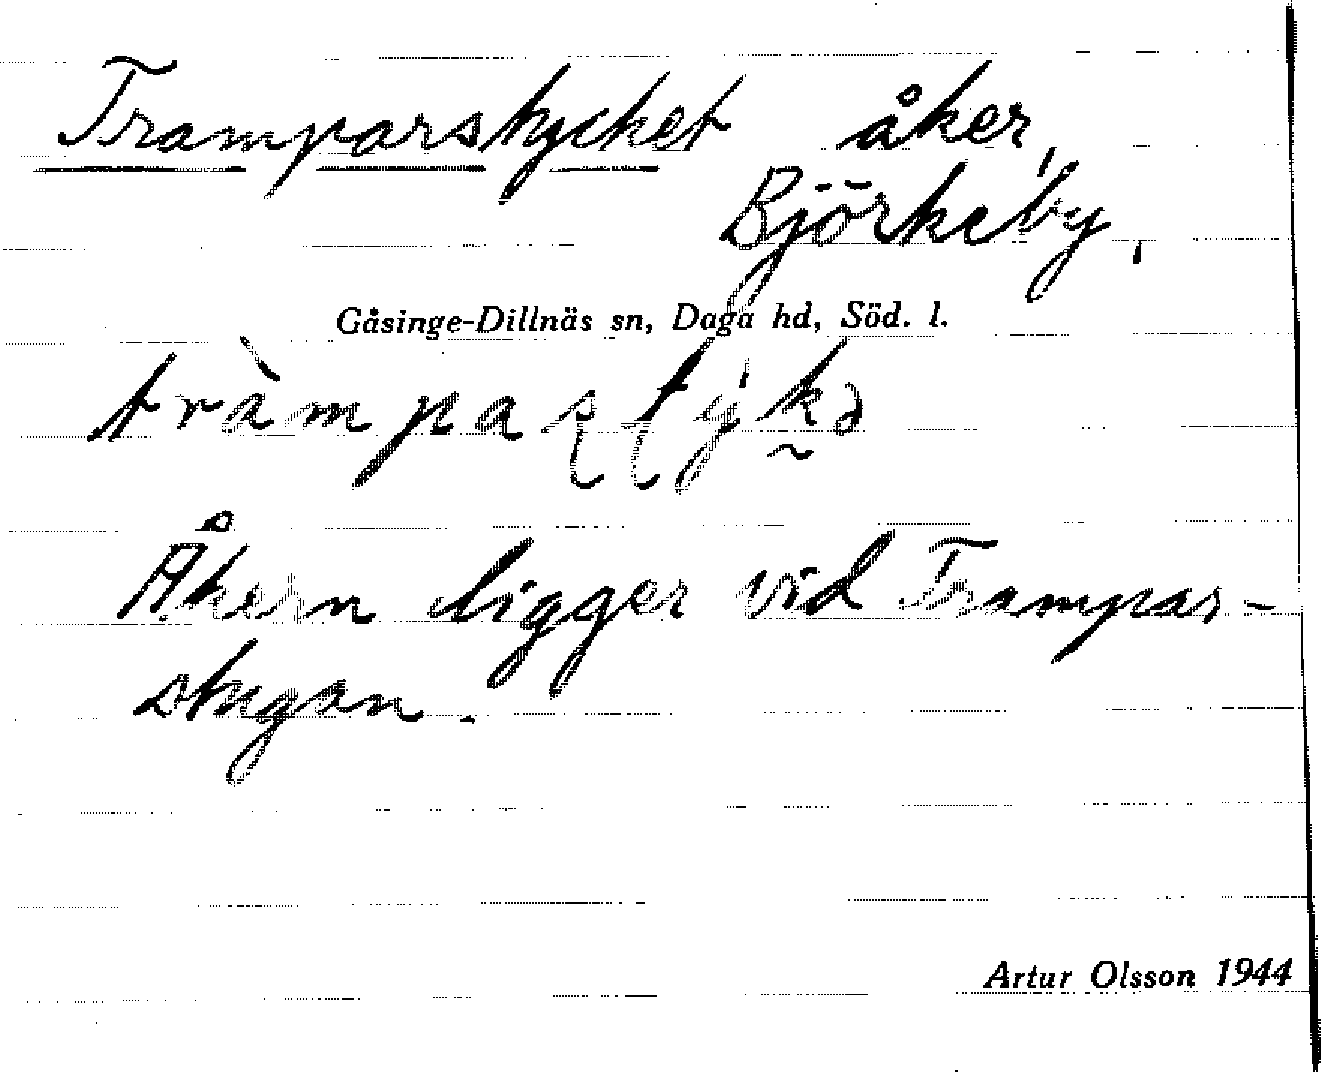 Tramparstycket åker,
Björkeby,
Gåsinge-Dillnäs sn, Daga hd, Söd. l.
tràmpaʂʈýkə
Åkern ligger vid Trampar-
stugan.
Artur Olsson 1944